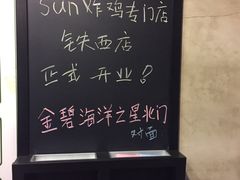 sun炸鸡专门店
铁西店
正式开业?
金碧海洋之星北门
对面